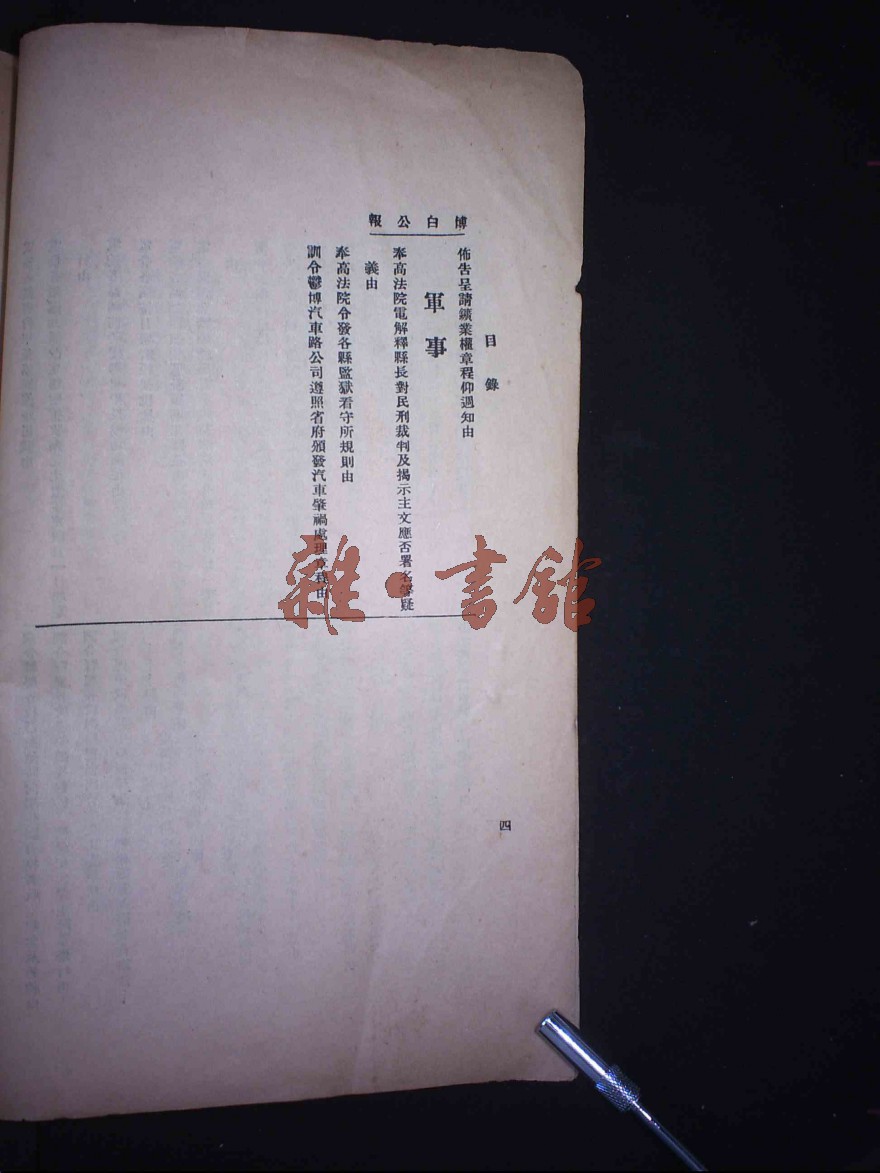 博白公報
目錄
佈告呈請鑛業權章程仰遇知由
軍事
奉高法院電解釋縣長對民刑裁判及揭示主文應否署名等疑
義由
奉高法院令發各縣監獄看守所規則由
訓令鬱博汽車路公司遵照省府頒發汽車肇禍處理章程由
四
雜·書館